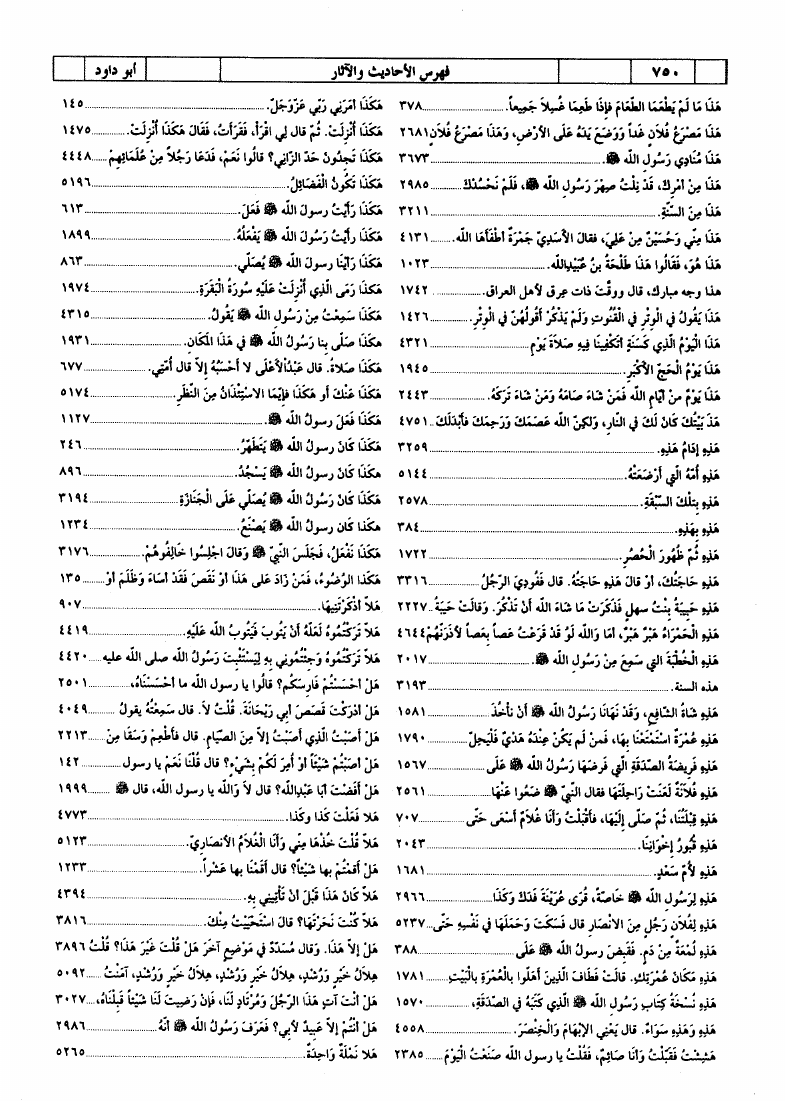 ٧٥٠ فهرس الأحاديث والآثار أبو داود
هَذَا مَا لَمْ يَطْعَمَا الطَّعَامَ فَإِذَا طَعِمَا غُسِلاَ جَمِيعاً. ٣٧٨
هَذَا مَصْرَعُ فُلاَنٍ غَداً وَوَضَعَ يَدَهُ عَلَى الأَرْضِ، وَهَذَا مَصْرَعُ فُلاَنٍ ٢٦٨١
هَذَا مُنَاوِي رَسُولِ اللَّه ﷺ. ٣٦٧٣
هَذَا مِنْ أَمْرِكَ، قَدْ نِلْتَ صِهْرَ رَسُولِ اللَّه ﷺ، فَلَمْ نَحْسُدْكَ ٢٩٨٥
هَذَا مِنَ السُّنَّةِ. ٣٢١١
هَذَا مِنِّي وَحُسَيْنٌ مِنْ عَلِيَ، فقالَ الأَسَدِيّ جَمْرَةٌ أَطْفَأَهَا اللَّه. ٤١٣١
هَذَا هُوَ، فَقَالُوا هَذَا طَلْحَةُ بنُ عُبَيْدِاللَّه. ١٠٢٣
هذا وجه مبارك، قال ووقّت ذات عِرق لأهل العراق. ١٧٤٢
هَذَا يَقُولُ في الْوِتْرِ في الْقُنُوتِ وَلَمْ يَذْكُرْ أَقُولُهُنّ في الْوِتْرِ. ١٤٢٦
هَذَا الْيَوْمُ الَّذِي كَسَنَةٍ أَتَكْفِينَا فِيهِ صَلاَةُ يَوْمٍ ٤٣٢١
هَذَا يَوْمُ الْحَجّ الأَكْبَرِ. ١٩٤٥
هَذَا يَوْمٌ منْ أَيّامِ اللَّه فَمَنْ شَاءَ صَامَهُ وَمَنْ شَاءَ تَرَكَهُ. ٢٤٤٣
هَذَ بَيْتُكَ كَانَ لَكَ في النّارِ، وَلكِنّ اللَّه عَصَمَكَ وَرَحِمَكَ فَأَبْدَلَكَ ٤٧٥١
هَذِهِ إدَامُ هَذِهِ. ٣٢٥٩
هَذِهِ أُمّهُ الَّتي أَرْضَعَتْهُ. ٥١٤٤
هَذِهِ بِتِلْكَ السَّبْقَةِ. ٢٥٧٨
هَذِهِ بِهَذِهِ. ٣٨٤
هَذِهِ ثُمّ ظُهُورَ الْحُصُرِ. ١٧٢٢
هَذِهِ حَاجَتُكَ، أَوْ قالَ هَذِهِ حَاجَتُهُ. قال فَفُودِيَ الرَّجُلُ ٣٣١٦
هَذِهِ حَبِيبَةُ بِنْتُ سهلٍ فَذَكَرَتْ مَا شَاءَ اللَّه أَنْ تَذْكُرَ. وَقالَتْ حَبِيبَةُ ٢٢٢٧
هَذِهِ الْحَمْرَاءُ هَبْرٌ هَبْرٌ، أَمَا وَاللَّه لَوْ قَدْ قَرَعْتُ عَصاً بِعَصاً لأَذَرَنّهُمْ ٤٦٤٤
هَذِهِ الْخُطْبَةَ التي سَمِعَ مِنْ رَسُولِ اللَّه ﷺ. ٢٠١٧
هذه السنة. ٣١٩٣
هَذِهِ شَاةُ الشّافِعِ، وَقَدْ نَهَانَا رَسُولُ اللَّه ﷺ أَنْ نَأْخُذَ ١٥٨١
هَذِهِ عُمْرَةٌ اسْتَمْتَعْنَا بِهَا، فَمنْ لَم يَكُنْ عِنْدَهُ هَدْيٌ فَلْيَحِلّ ١٧٩٠
هَذِهِ فَرِيضَةُ الصّدَقَةِ الَّتي فَرَضَهَا رَسُولُ اللَّه ﷺ عَلَى ١٥٦٧
هَذِهِ فُلاَنَةُ لَعَنَتْ رَاحِلَتَهَا فقال النّبيّ ﷺ ضَعُوا عَنْهَا ٢٥٦١
هَذِهِ قِبْلَتُنَا، ثُمّ صَلّى إلَيْهَا، فَأَقْبَلْتُ وَأنَا غُلاَمٌ أَسْعَى حَتّى ٧٠٧
هَذِهِ قُبُورُ إخْوَانِنَا. ٢٠٤٣
هَذِهِ لأُمّ سَعْدٍ. ١٦٨١
هَذِهِ لِرَسُولِ اللَّه ﷺ خَاصّةً، قُرَى عُرَيْنَةَ فَدَكَ وَكَذَا ٢٩٦٦
هَذِهِ لِفُلاَنٍ رَجُلٍ مِنَ الأنْصَارِ قال فَسَكَتَ وَحَمَلَهَا في نَفْسِهِ حَتّى ٥٢٣٧
هَذِهِ لُمْعَةٌ مِنْ دَمٍ. فَقَبَضَ رسولُ اللَّه ﷺ عَلَى ٣٨٨
هَذِهِ مَكَانُ عُمْرَتِكِ. قالَتْ فَطَافَ الّذِينَ أَهَلّوا بالْعُمْرَةِ بِالْبَيْتِ ١٧٨١
هَذِهِ نُسْخَةُ كِتَابِ رَسُولِ اللَّه ﷺ الَّذِي كَتَبَهُ في الصّدَقَةِ، ١٥٧٠
هَذِهِ وَهَذِهِ سَوَاءٌ. قال يَعْني الإبْهَامَ وَالْخِنْصَرَ. ٤٥٥٨
هَشِشْتُ فَقَبّلْتُ وَأَنَا صَائِمٌ، فَقُلْتُ يا رسول اللَّه صَنَعْتُ الْيَوْمَ ٢٣٨٥
هَكَذَا أَمَرَني رَبّي عَزّوَجَلّ. ١٤٥
هَكَذَا أُنْزِلَتْ. ثُمّ قال لِي اقْرَأْ، فَقَرَأْتُ، فَقَالَ هَكَذَا أُنْزِلَتْ. ١٤٧٥
هَكَذَا تَجِدُونَ حَدّ الزّاني؟ قالُوا نَعَمْ، فَدَعَا رَجُلاً مِنْ عُلَمَائِهِمْ ٤٤٤٨
هَكَذَا تَكُونُ الْفَضَائِلُ. ٥١٩٦
هَكَذَا رَأَيْتُ رسولَ اللَّه ﷺ فَعَلَ. ٦١٣
هَكَذَا رأَيْتُ رَسُولَ اللَّه ﷺ يَفْعَلُهُ. ١٨٩٩
هَكَذَا رَأَيْنَا رسولَ اللَّه ﷺ يُصَلّي. ٨٦٣
هَكَذَا رَمَى الَّذِي أُنْزِلَتْ عَلَيْهِ سُورَةُ الْبَقَرَةِ. ١٩٧٤
هَكَذَا سَمِعْتُ مِنْ رَسُولِ اللَّه ﷺ يَقُولُ. ٤٣١٥
هكَذَا صَلّى بِنا رَسُولُ اللَّه ﷺ في هَذَا الْمَكَانِ. ١٩٣١
هَكَذَا صَلاَةُ. قال عَبْدُالأَعْلَى لا أَحْسَبُهُ إلاّ قال أُمّتِي. ٦٧٧
هَكَذَا عَنْكَ أو هَكَذَا فإنّمَا الاسْتِئْذَانُ مِنَ النّظَرِ. ٥١٧٤
هَكَذَا فَعَلَ رسولُ اللَّه ﷺ. ١١٢٧
هَكَذَا كَانَ رَسُولُ اللَّه ﷺ يَتَطَهّرُ. ٢٤٦
هكَذَا كَانَ رَسُولُ اللَّه ﷺ يَسْجُدُ. ٨٩٦
هَكَذَا كَانَ رَسُولُ اللَّه ﷺ يُصَلّي عَلَى الْجَنَازَةِ ٣١٩٤
هكذا كان رسولُ اللَّه ﷺ يَصْنَعُ. ١٢٣٤
هَكَذَا نَفْعَلُ، فَجَلَسَ النّبيّ ﷺ وَقالَ اجْلِسُوا خَالِفُوهُمْ. ٣١٧٦
هَكَذا الوُضُوءُ، فَمَنْ زَادَ عَلى هَذَا أَوْ نَقَصَ فَقَدْ أَسَاءَ وَظَلَمَ أَوْ ١٣٥
هَلاّ أَذْكَرْتَنِيهَا. ٩٠٧
هَلاّ تَرَكْتُمُوهُ لَعَلّهُ أَنْ يَتُوبَ فَيَتُوبَ اللَّه عَلَيْهِ. ٤٤١٩
هَلاّ تَرَكْتُمُوهُ وَجِئْتُمُوني بِهِ لِيَسْتَثْبِتَ رَسُولُ اللَّه صلى اللَّه عليه ٤٤٢٠
هَلْ أَحْسَسْتُمْ فَارِسَكُم؟ قالُوا يا رسول اللَّه ما أَحْسَسْنَاهُ، ٢٥٠١
هَلْ أَدْرَكْتَ قَصَصَ أبي رَيْحَانَةَ. قُلْتُ لاَ. قال سَمِعْتُهُ يقولُ ٤٠٤٩
هَلْ أَصَبْتُ الَّذِي أَصَبْتُ إلاّ مِنَ الصّيَامِ. قال فأَطْعِمْ وَسَقاً مِنْ ٢٢١٣
هَلْ أَصَبْتُمْ شَيْئاً أوْ أُمِرَ لَكُمْ بِشَيْءٍ؟ قال قُلْنَا نَعَمْ يا رسول ١٤٢
هَلْ أَفَضْتَ أبَا عَبْدِاللَّه؟ قال لاَ وَاللَّه يا رسول اللَّه، قال ﷺ ١٩٩٩
هلا فَعَلْتَ كَذَا وكَذَا. ٤٧٧٣
هَلاّ قُلْتَ خُذْهَا مِنّي وَأَنَا الْغُلاَمُ الأنْصَارِيّ. ٥١٢٣
هَلْ أَقَمْتُمْ بها شَيْئاً؟ قال أَقَمْنَا بها عَشْراً. ١٢٣٣
هَلاّ كَانَ هَذَا قَبْلَ أَنْ تَأْتِيَني بِهِ. ٤٣٩٤
هَلاّ كُنْتَ نَحَرْتَهَا؟ قالَ اسْتَحْيَيْتُ مِنْكَ. ٣٨١٦
هَلْ إلاّ هَذَا. وقال مُسَدّدٌ في مَوْضِعٍ آخَرَ هَلْ قُلْتَ غَيْرَ هَذَا؟ قُلْتُ ٣٨٩٦
هِلاَلُ خَيْرٍ وَرُشْدٍ، هِلاَلُ خَيْرٍ وَرُشْدٍ، هِلاَلُ خَيْرٍ وَرُشْدٍ، آمَنْتُ ٥٠٩٢
هَلْ أَنْتَ آتٍ هَذَا الرّجُلَ وَمُرْتَادٍ لَنَا، فَإنْ رَضِيتَ لَنَا شَيْئاً قَبِلْنَاهُ، ٣٠٢٧
هَلْ أَنْتُمْ إلاّ عَبِيدٌ لأَبي؟ فَعَرَفَ رَسُولُ اللَّه ﷺ أَنّهُ ٢٩٨٦
هَلا نَمْلَةً وَاحِدَةً. ٥٢٦٥